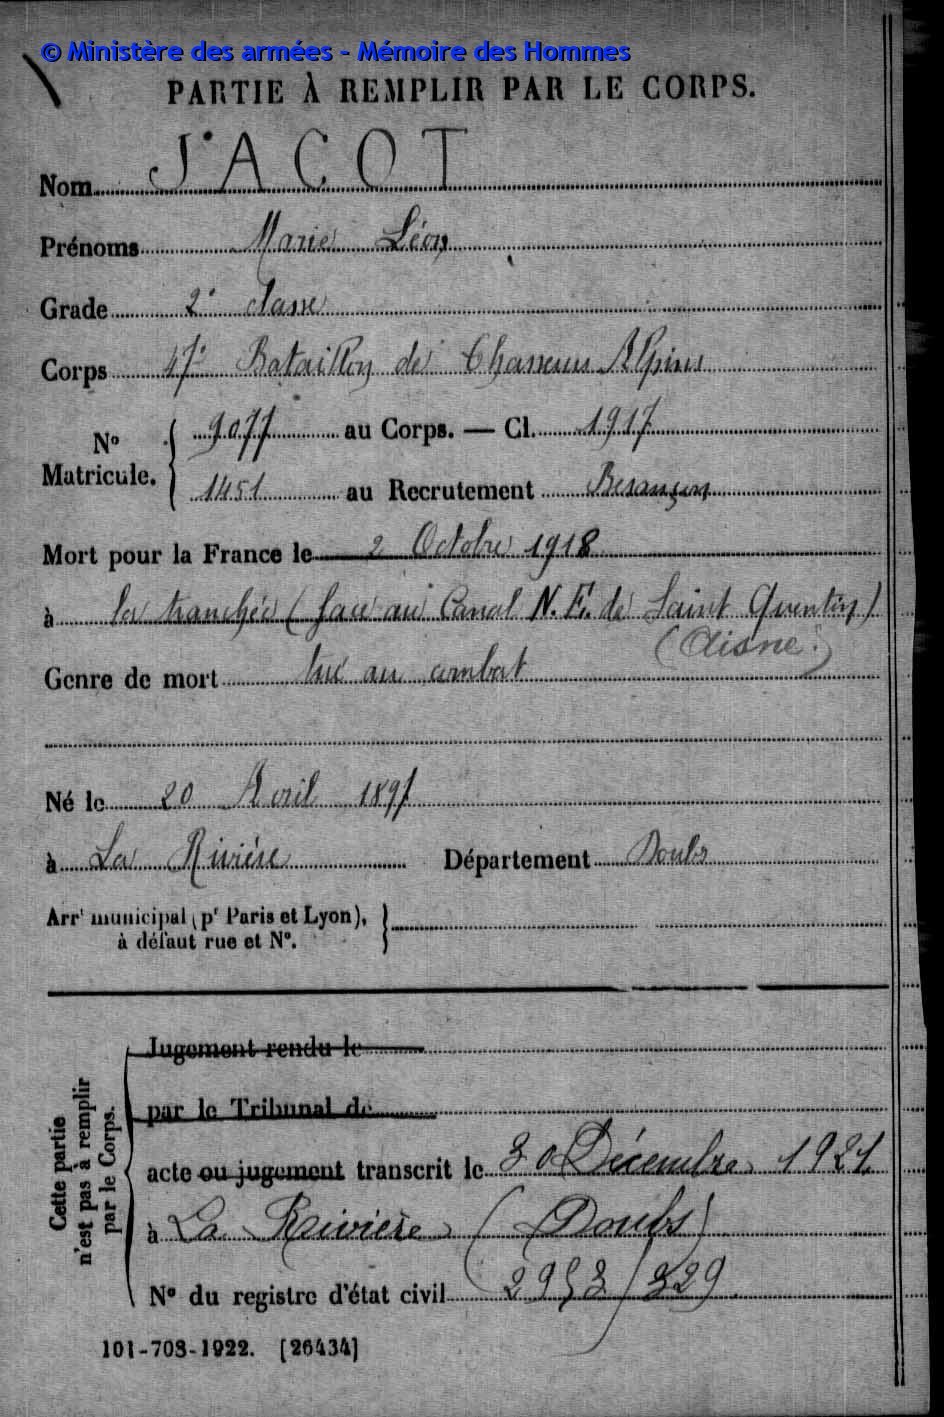 © Ministère des armées - Mémoire des Hommes
PARTIE À REMPLIR PAR LE CORPS.
Nom JACOT
Prénoms Marie Léon
Grade 2e classe
Corps 47e Bataillon de Chasseurs Alpins
N° Matricule. { 9077 au Corps. — Cl. 1917
1451 au Recrutement Besançon
Mort pour la France le 2 Octobre 1918
à la tranchée (face au Canal N. E. de Saint Quentin)
(Aisne.)
Genre de mort tué au combat
Né le 20 Avril 1897
à La Rivière Département Doubs
Arrt municipal (pr Paris et Lyon),
à défaut rue et N°.
Cette partie
n'est pas à remplir
par le Corps.
Jugement rendu le
par le Tribunal de
acte ou jugement transcrit le 30 Décembre 1921
à La Rivière (Doubs)
N° du registre d'état civil 2953/329
101-708-1922. [26434]